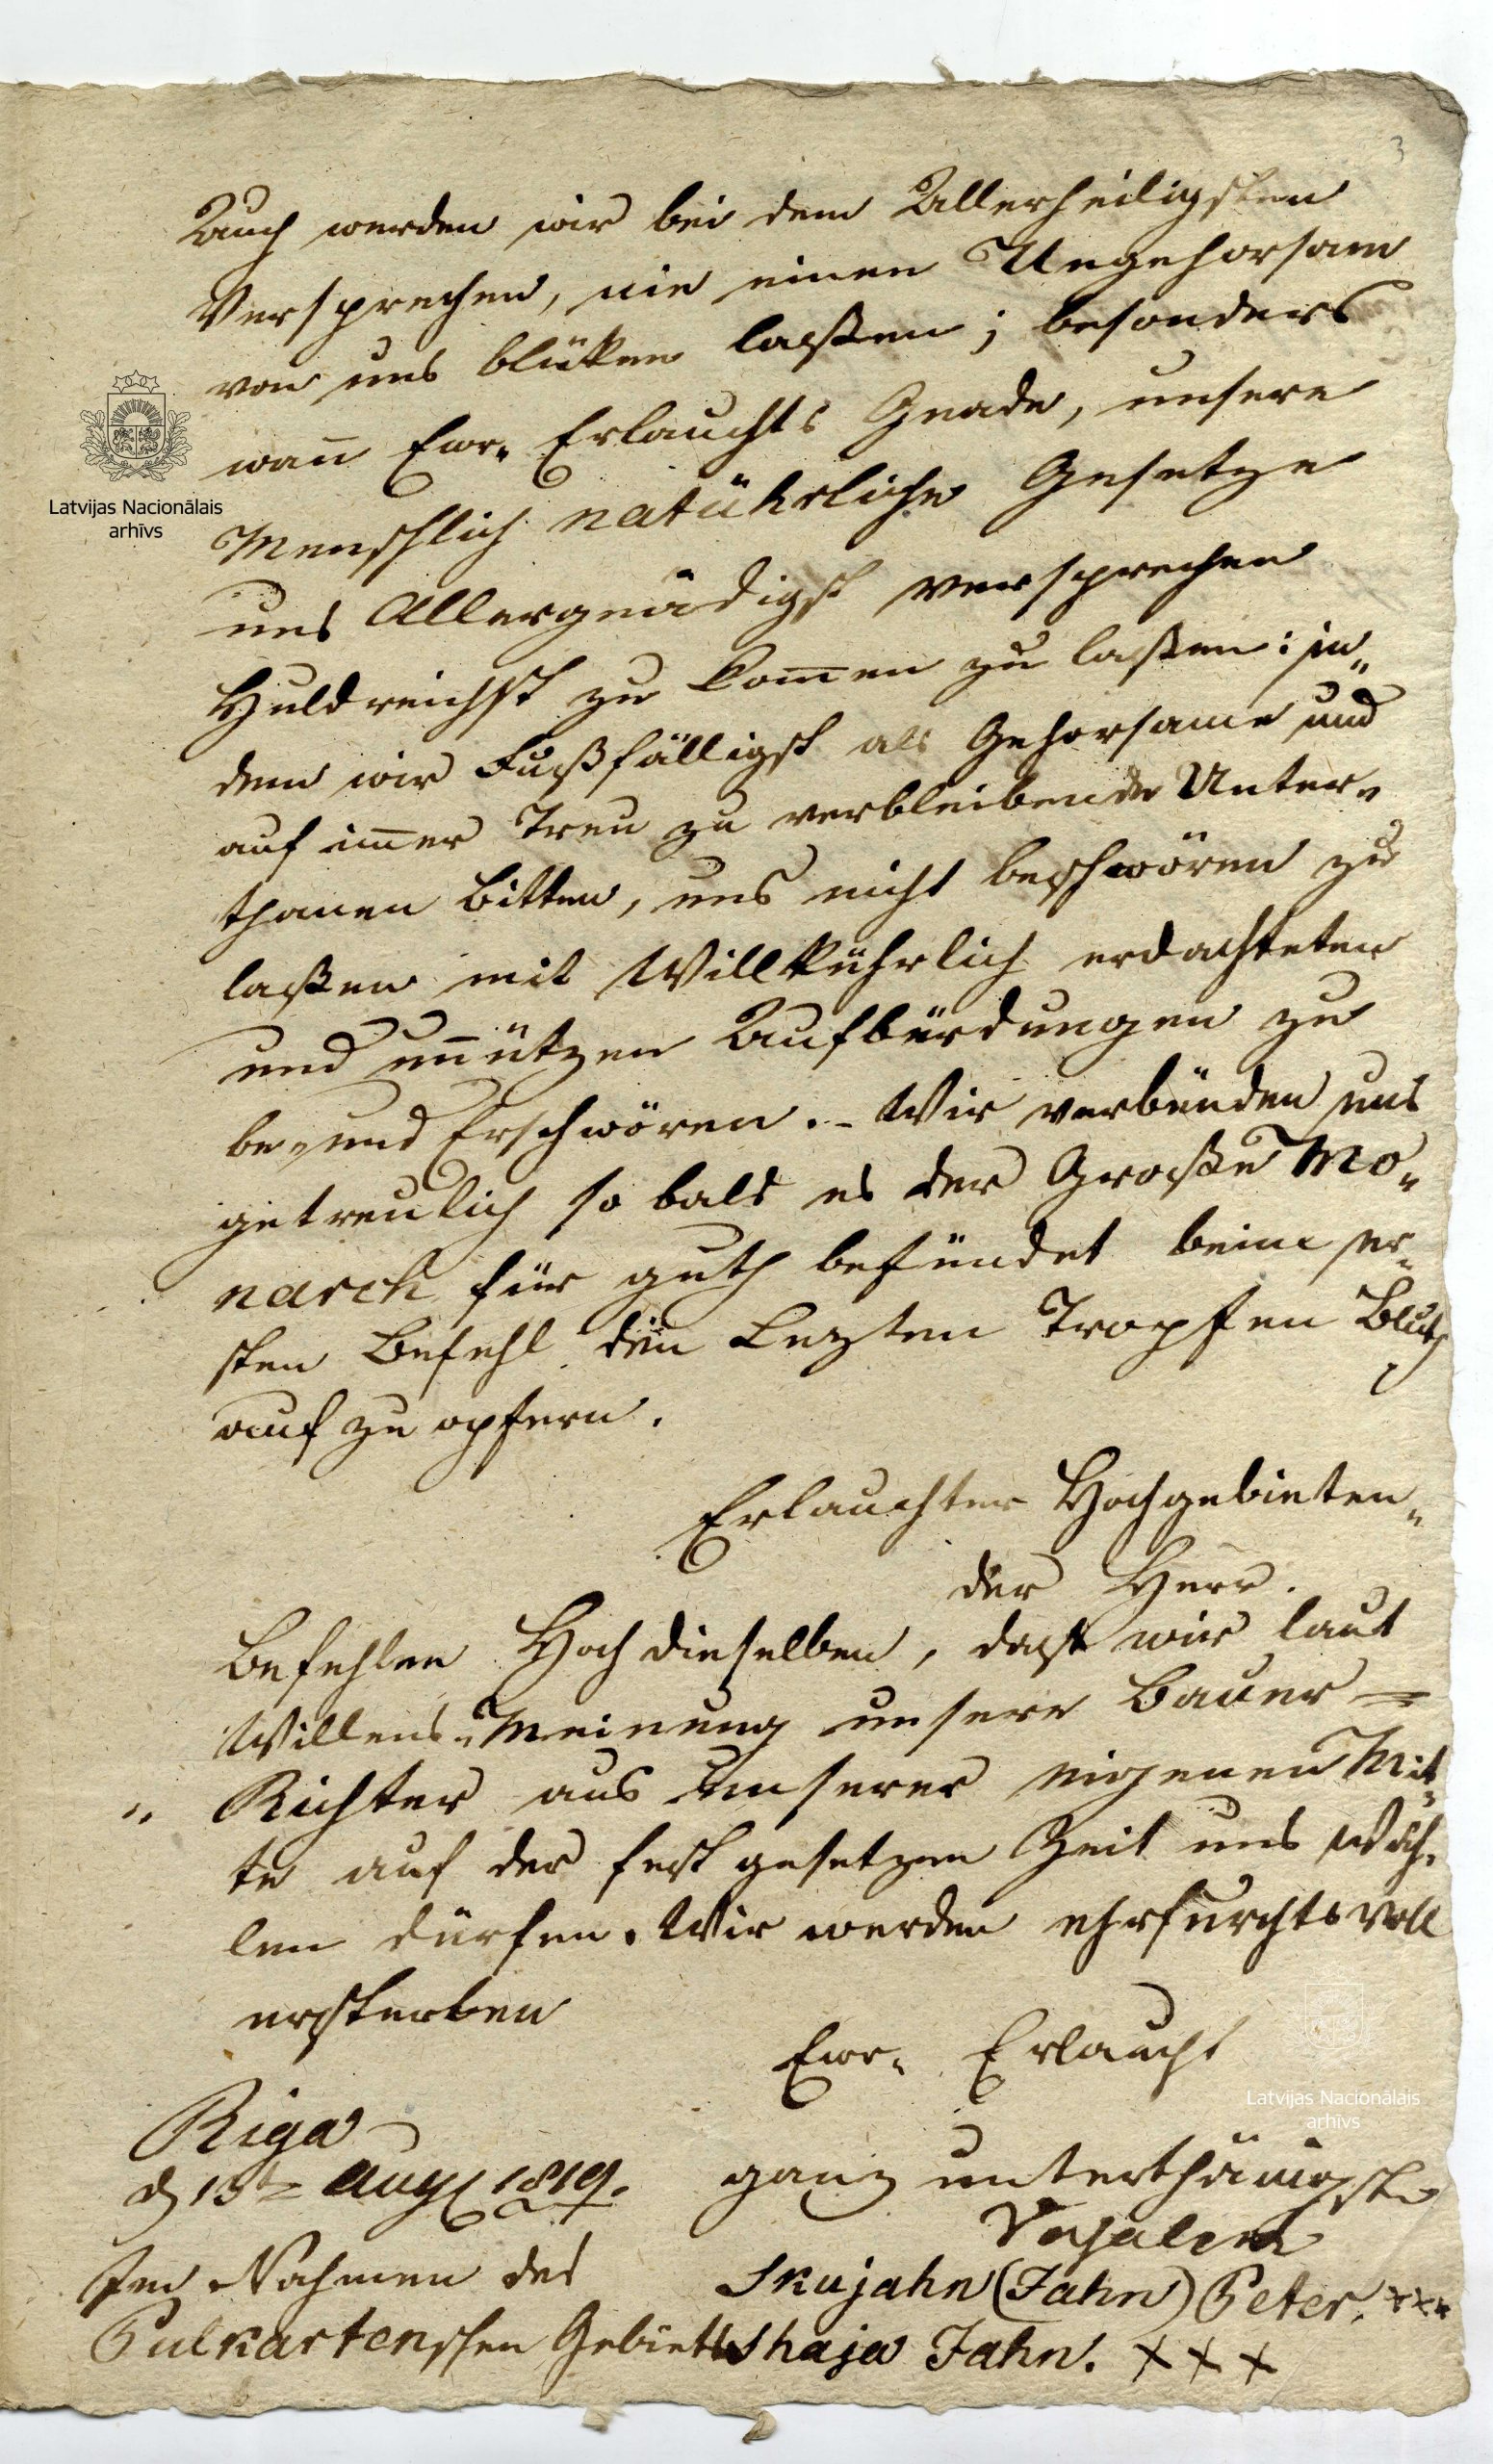 3
Auch werden wir bei dem Allerheiligsten
Versprechen, nie einen Ungehorsam
von uns blüken laßen; besonders
wan̄ Ewr. Erlauchts Gnade, unsere
Menschlich natührliche Gesetze
uns Allergnädigst versprechen
Huldreichst zu kom̄en zu laßen: in„
dem wir Fußfälligst als Gehorsame und
auf im̄er Treu zu verbleibende Unter„
thanen bitten, uns nicht beschwören zu
laßen mit Willkührlich erdachteten
und un̄ützen Aufbürdungen zu
be„ und Erschwören. - Wir verbünden uns
getreulich so bald es der Große Mo„
narch für guth befündet beim er„
sten Befehl den Lezten Tropfen Bluth
auf zu opfern.
Erlauchter Hochgebieten„
der Herr.
Befehlen Hoch dieselben, daß wir laut
Willens„Meinung unsere Bauer=
„ Richter aus unserer eigenen Mit„
te auf der fest gesetzen Zeit uns Wäh„
len dürfen. Wir werden ehrfurchtsvoll
ersterben
Ewr. Erlaucht
Riga
d 13t Aug 1819.
ganz unterthänigste
Vasalen
Im Nahmen des
Skujahn (Jahn) Peter. xxx
Pulkartenschen Gebiets
Shaja Jahn. x x x
Latvijas Nacionālais
arhīvs
Latvijas Nacionālais
arhīvs